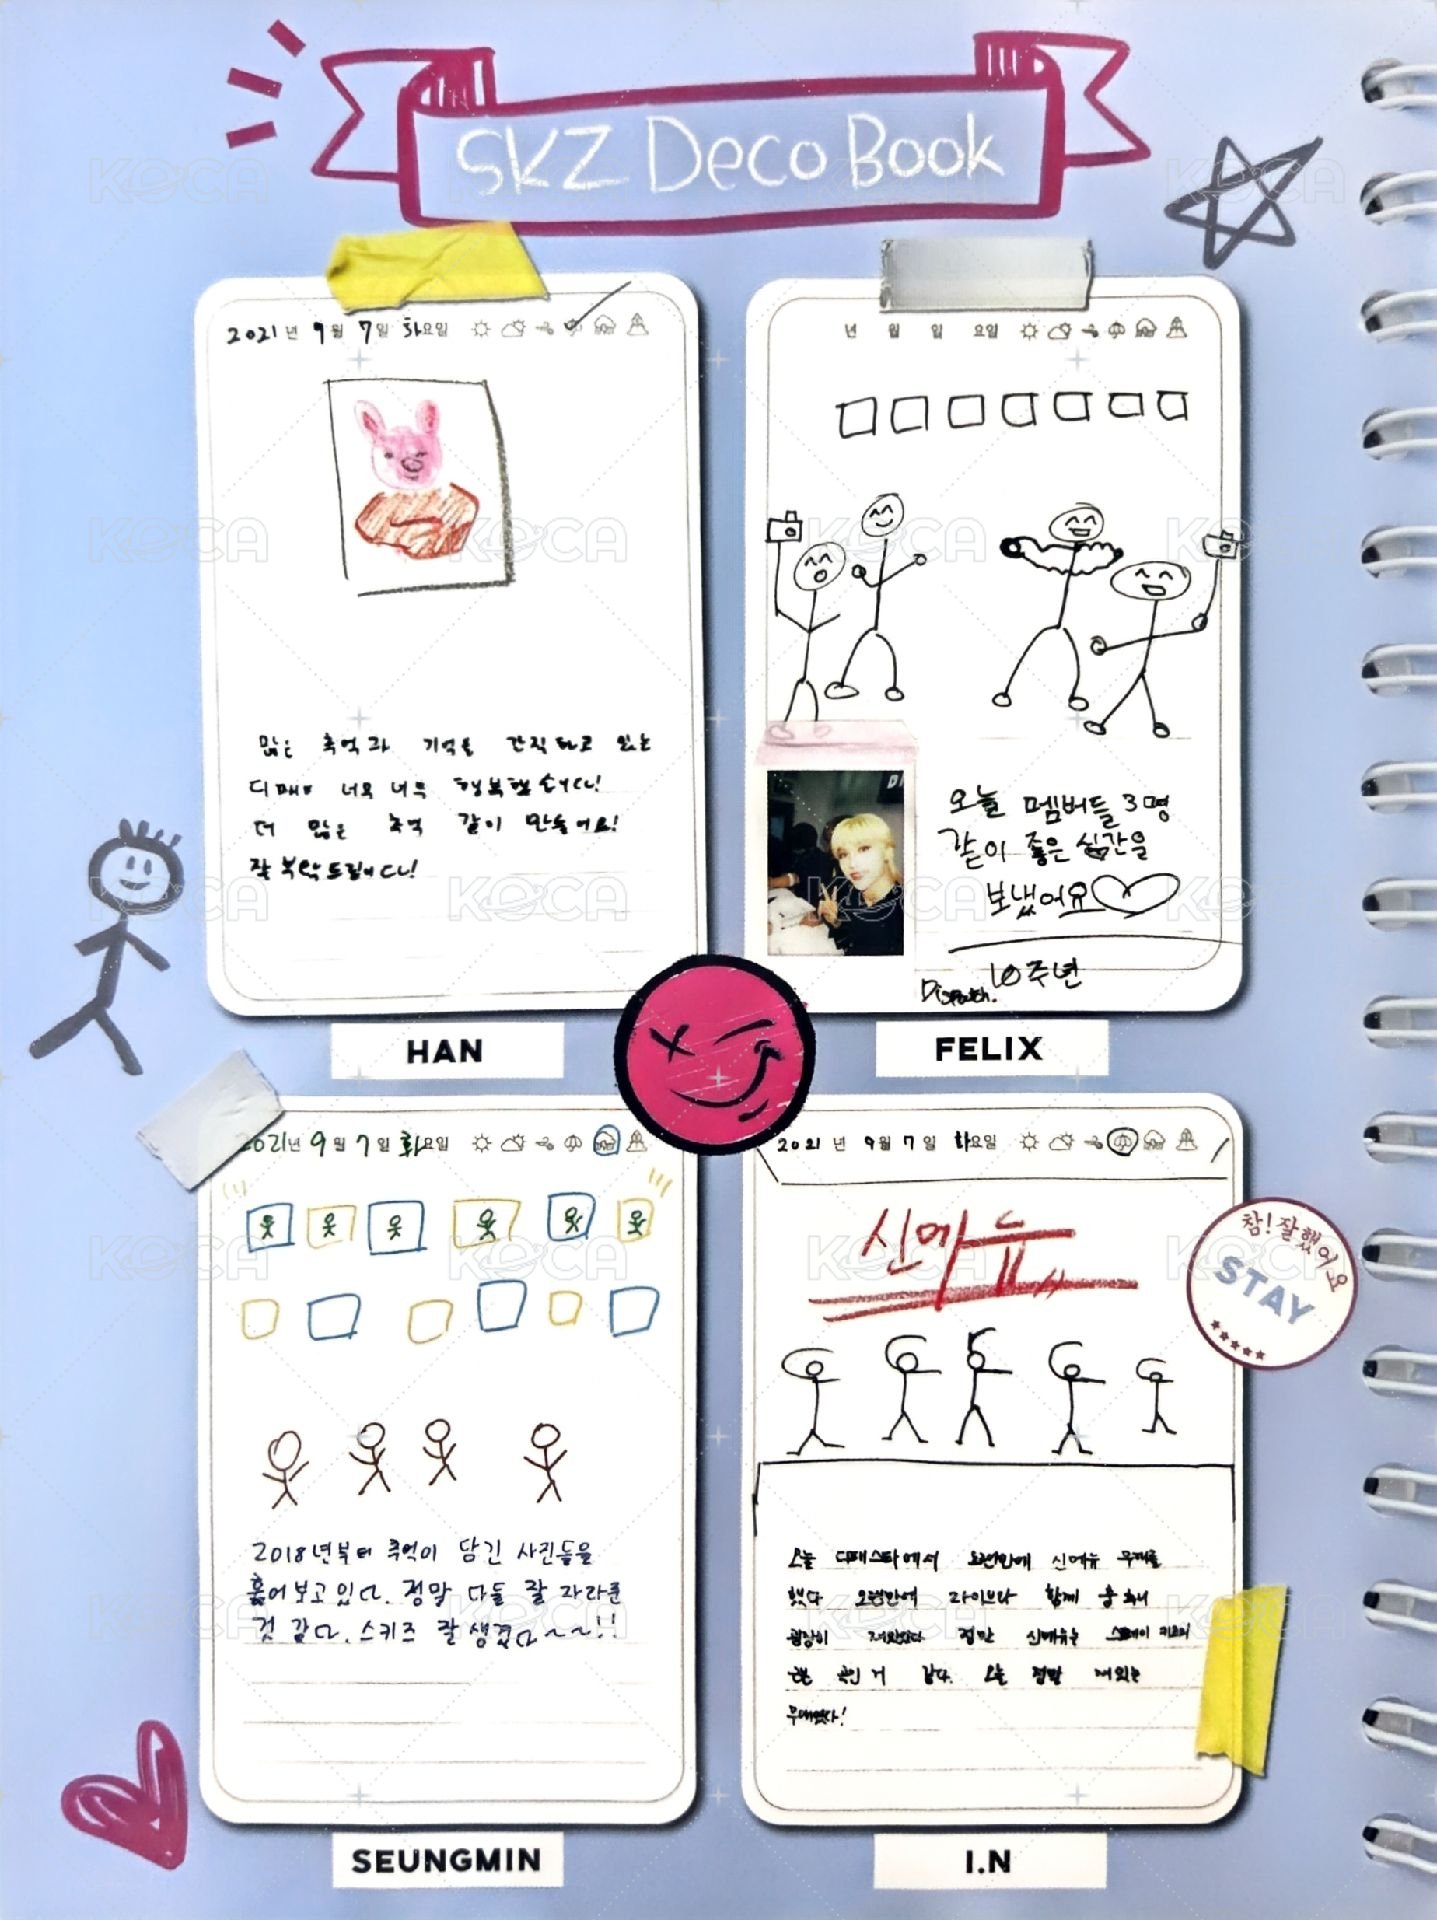 SKZ Deco Book
2021년 9월 7일 화요일
많은 추억과 기억을 간직하고 있는
디패 너무 너무 행복했습니다!
더 많은 추억 같이 만들어요!
잘 부탁드립니다!
HAN
년 월 일 요일
오늘 멤버들 3명
같이 좋은 시간을
보냈어요♡
10주년
Dispatch.
FELIX
2021년 9월 7일 화요일
2018년부터 추억이 담긴 사진들을
훑어보고 있다. 정말 다들 잘 자라준
것 같다. 스키즈 잘생겼다~~!!
SEUNGMIN
2021년 9월 7일 화요일
신메뉴
오늘 디패스타에서 오랜만에 신메뉴 무대를
했다 오랜만에 라이브라 함께 춤추니
굉장히 재밌었다. 정말 신메뉴는 스트레이 키즈의
곡인 거 같다. 오늘 정말 재밌는
무대였다!
I.N
참! 잘했어요
STAY
KOCA